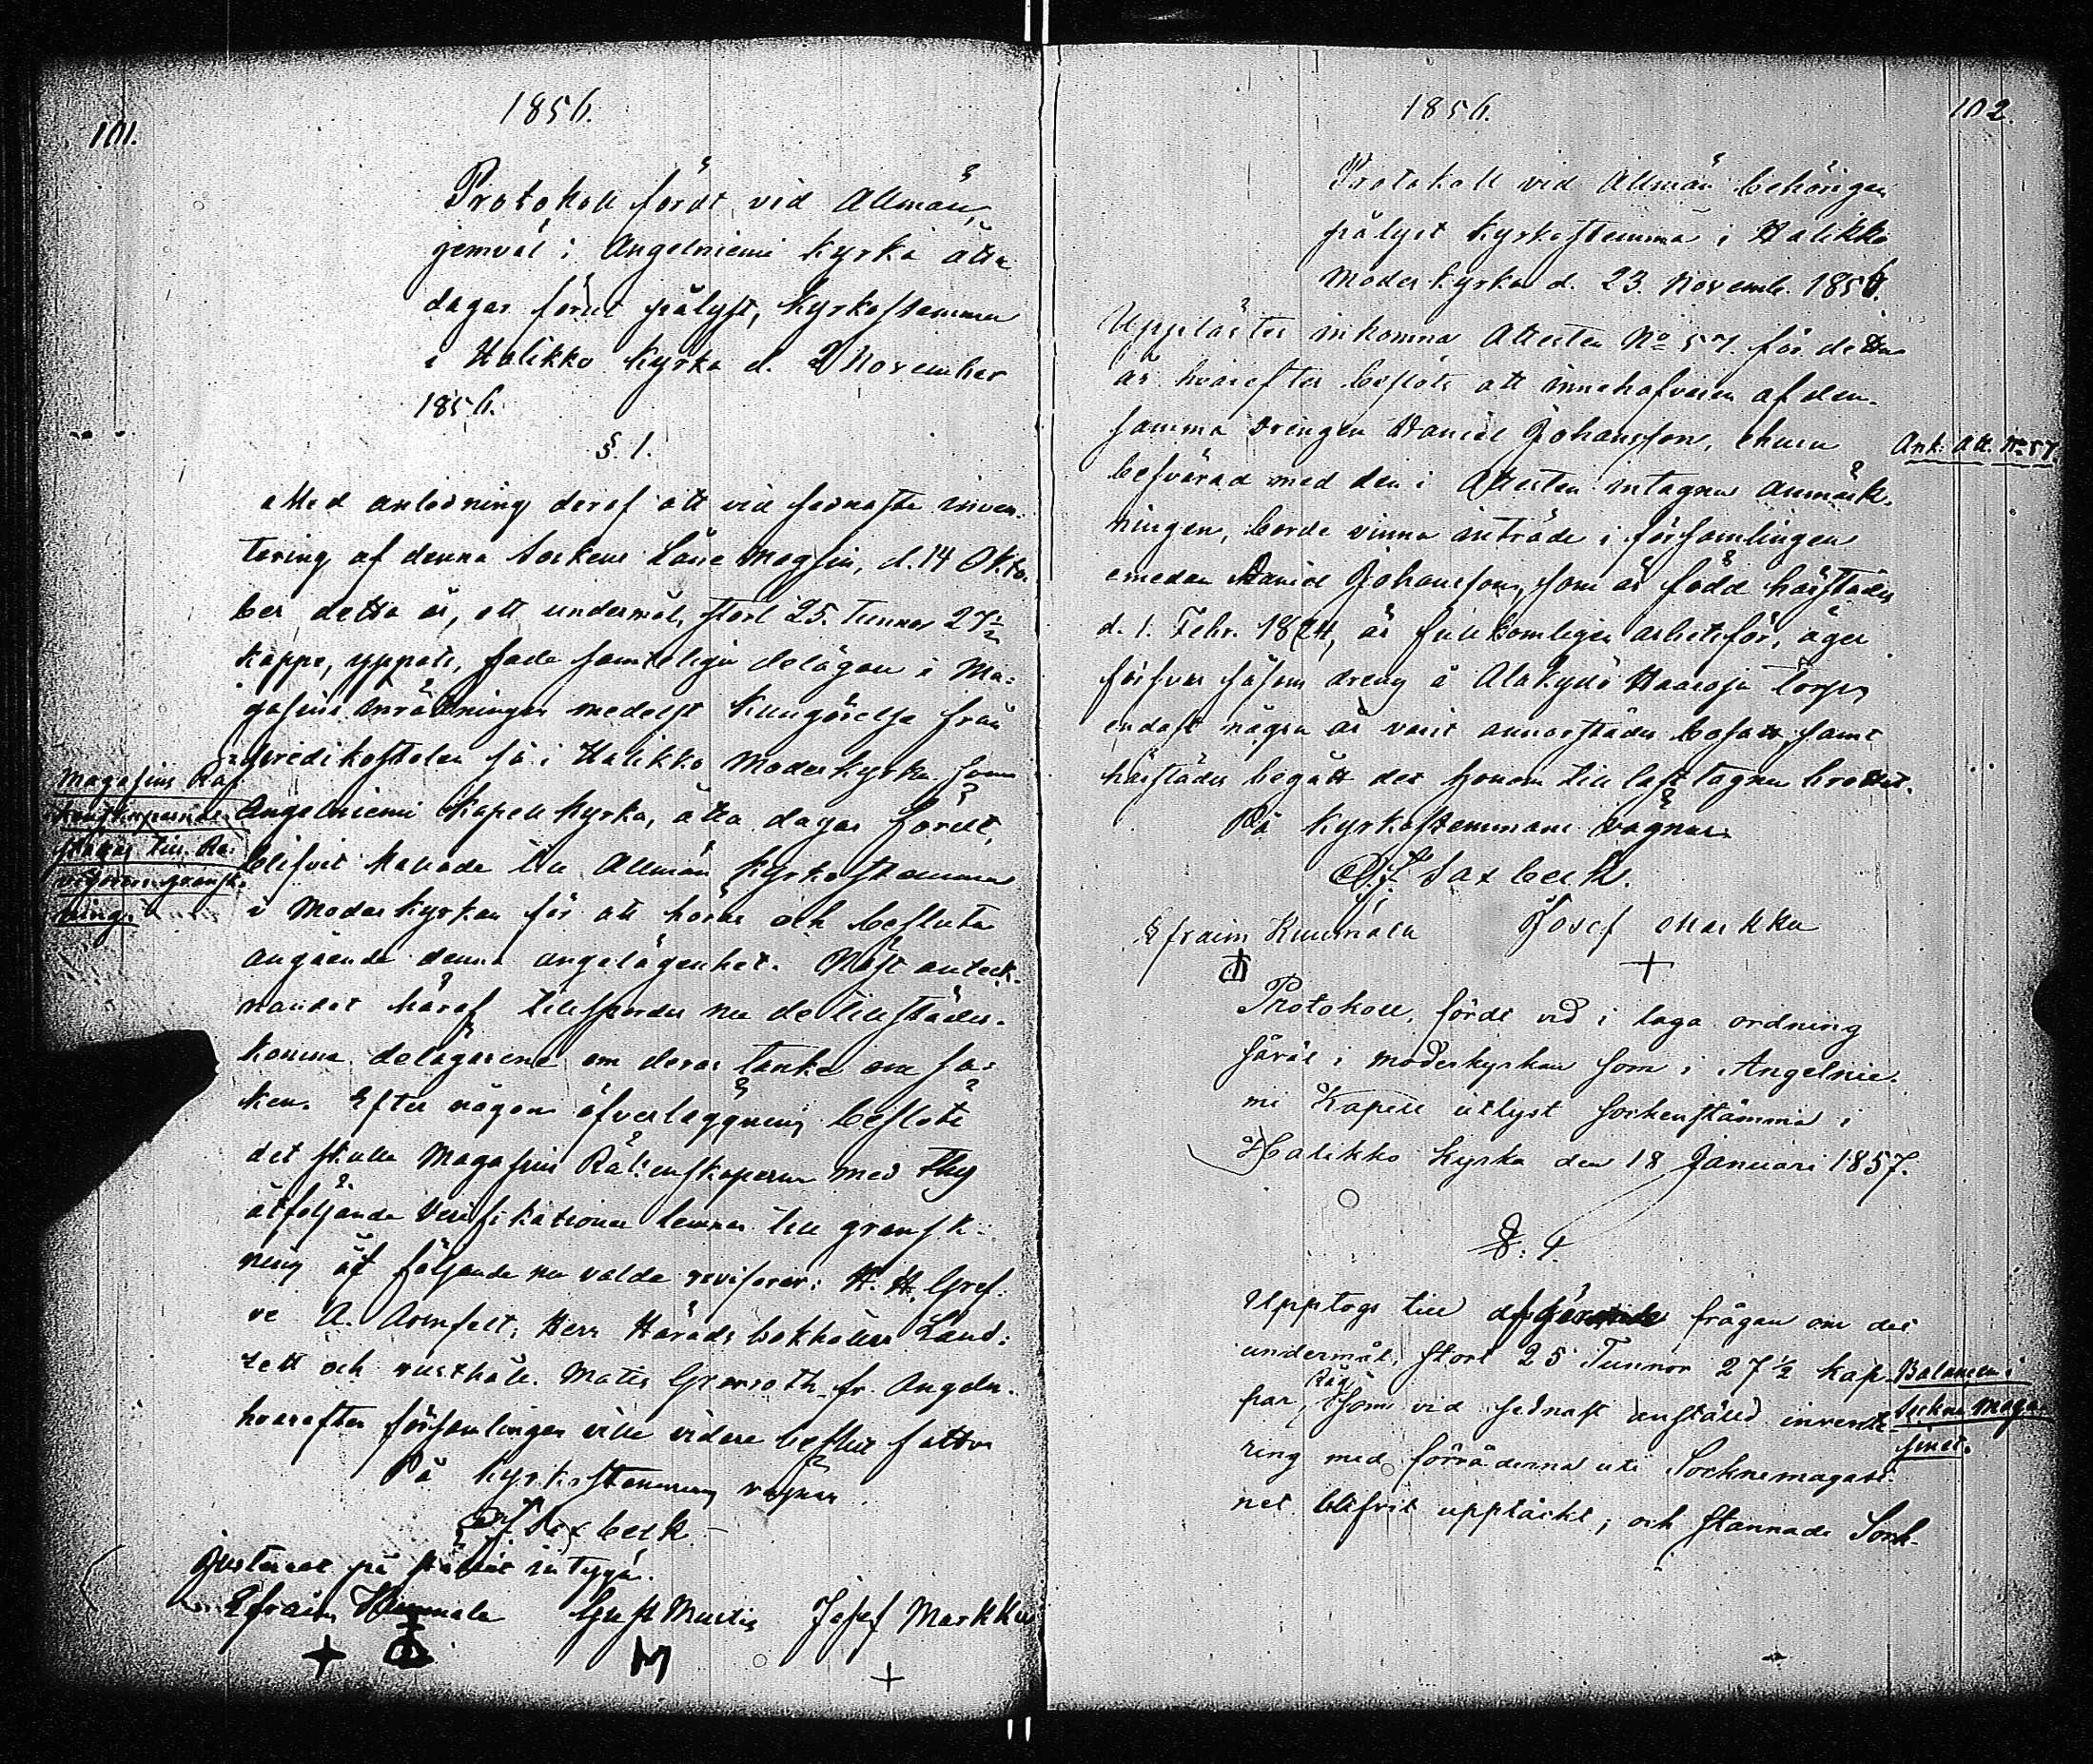 1856.
101.
Protokoll fördt vid Allmän,
jemväl i Angelniemi Kyrka åtta
dagar förut pålyst, Kyrkostämma
i Halikko Kyrka d. 2 November
1856.
§. 1.
Med anledning deraf att vid sednaste inven-
tering af denna Sockens Låne Magsin, d. 14 Okto-
ber detta år, ett undermål, stort 25. Tunnor 27 1/2
kappe, yppats, hade samtelige delägare i Ma-
gasins Inrättningen medelst kungörelse från
Predikostolen så i Halikko Moderkyrka som
Angelniemi Kapell kyrka, åtta dagar förut,
blifvit kallade till Allmän Kyrkostämma
i Moderkyrkan för att höras och besluta
angående denna angelägenhet. Näst anteck-
nandet häraf tillspordes nu de tillstädes-
komna delägarena om deras tanke om sa-
ken. Efter någon öfverläggning beslöts
det skulle Magasins Räkenskaperna med thy
åtföljande Verifikationer lemnas till gransk-
ning af följande nu valda revisorer: H. H. Gref-
ve A. Armfelt, Herr Härads bokhållare Land-
zett och rusthåll. Matts Grönroth fr. Angeln.
hvarefter församlingen ville vidare beslut fatta
På Kyrkostämmans vägnar
Saxbeck
Justeradt på stället intyga.
Efraim Kuumala Gust Mustis Josef Markku
+ M +
Magasins Rä-
kenskaperna
till Re-
visorers gransk-
ning.
1856.
102.
Protokoll vid Allmän behörigen
pålyst Kyrkostämma i Halikko
Moderkyrka d. 23. Novemb. 1856.
Upplästes inkomna Attesten No 57. för detta
år hvarefter beslöts att innehafvaren af den-
samma drängen Daniel Johansson, ehuru
besvärad med den i Attesten intagna anmärk-
ningen, borde vinna inträde i församlingen
emedan Daniel Johansson, som är född härstädes
d. 1. Febr. 1824, är fullkomligen arbetsför, äger
försvar såsom dreng å Alakylä Haaroja torp,
endast några år varit annorstädes bosatt, samt
härstädes begått det honom till last lagna brottet.
På Kyrkostemmans vägnar
Saxbeck.
Efraim Kuumala Josef Markku
+
Ank. Att. No 57.
Protokoll, fördt vid i laga ordning
såväl i moderkyrkan som i Angelnie-
mi Kapell utlyst sockenstämma i
Halikko Kyrka den 18 Januari 1857.
§. 1.
Upptogs till frågan om det
undermål, stort 25 Tunnor 27 1/2 kap-
par, Råg, som vid sednast anstäld invente-
ring med förråderna uti Socknemagasi-
net blifvit upptäckt; och stannade Sock-
Balancen i
Sockne Maga-
sinet.